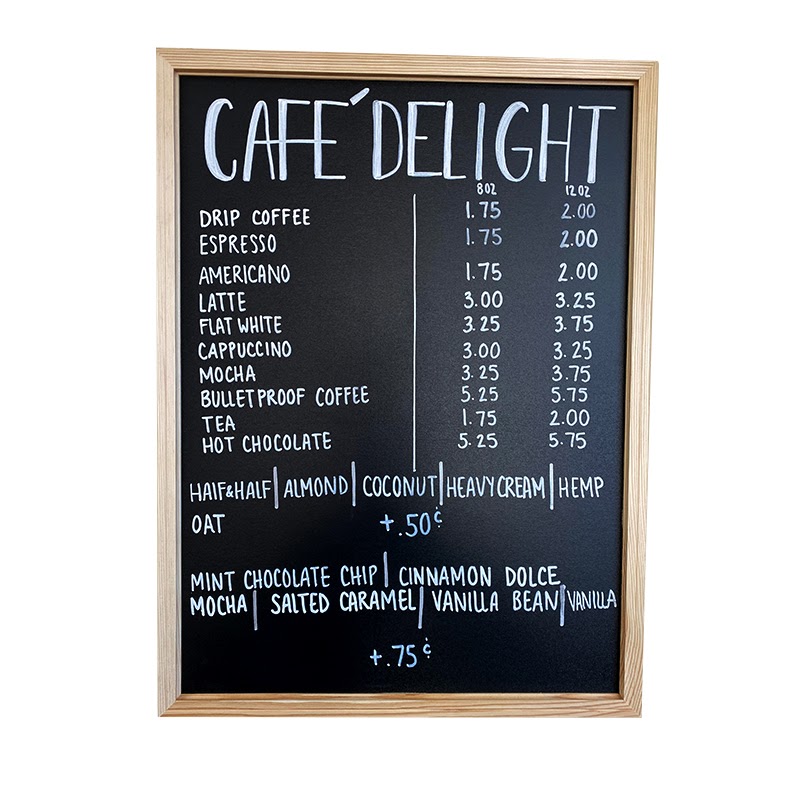 CAFÉ DELIGHT
8OZ 12OZ
DRIP COFFEE 1.75 2.00
ESPRESSO 1.75 2.00
AMERICANO 1.75 2.00
LATTE 3.00 3.25
FLAT WHITE 3.25 3.75
CAPPUCCINO 3.00 3.25
MOCHA 3.25 3.75
BULLETPROOF COFFEE 5.25 5.75
TEA 1.75 2.00
HOT CHOCOLATE 5.25 5.75
HALF&HALF | ALMOND | COCONUT | HEAVY CREAM | HEMP
OAT +.50¢
MINT CHOCOLATE CHIP | CINNAMON DOLCE
MOCHA | SALTED CARAMEL | VANILLA BEAN | VANILLA
+.75¢